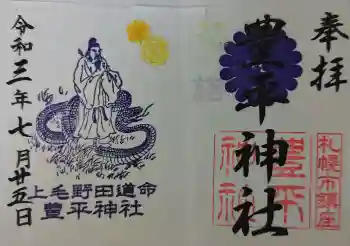 奉拝
豊平神社
札幌市鎮座
豊平
神社
令和三年七月廿五日
上毛野田道命
豊平神社